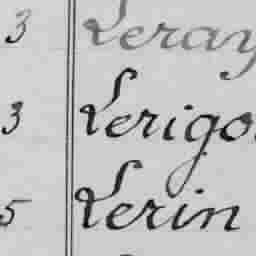 3 Leray
3 Lerigo
5 Lerin